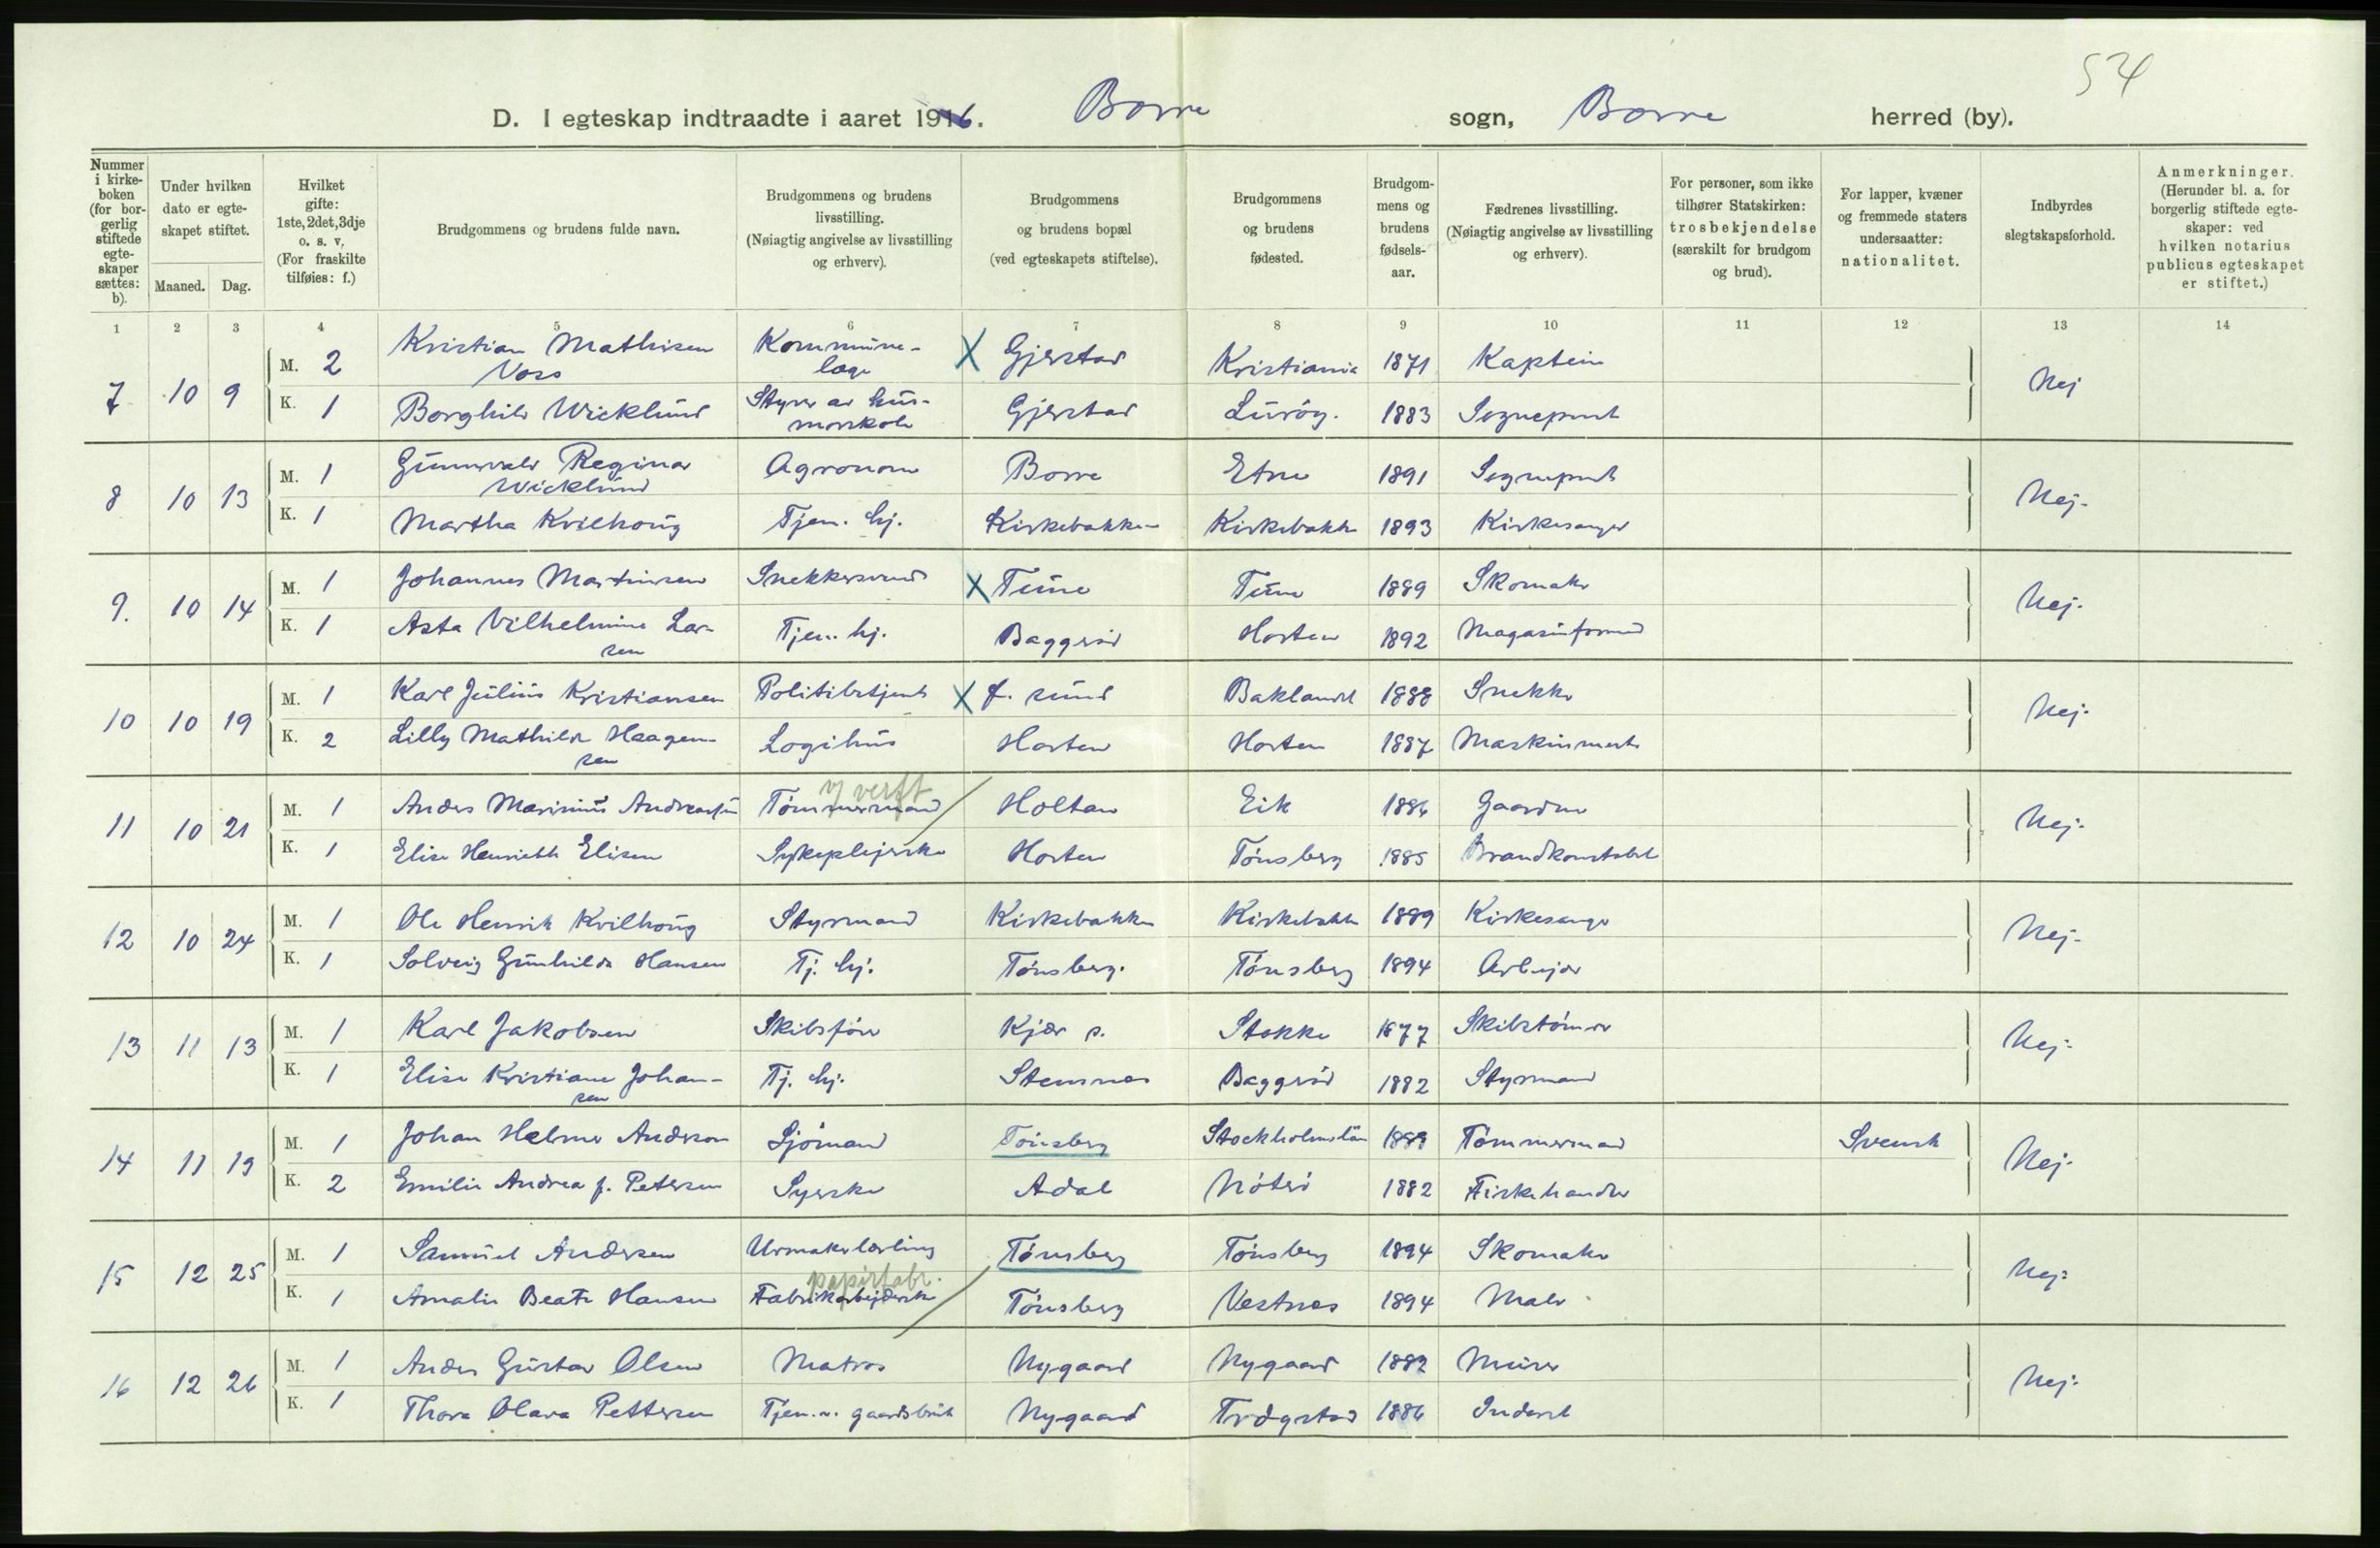 54
D. I egteskap indtraadte i aaret 1916. Borre sogn, Borre herred (by).
Nummer i kirke-boken (for bor-gerlig stiftede egte-skaper sættes: b).
Under hvilken dato er egte-skapet stiftet.
Maaned. Dag.
Hvilket gifte: 1ste, 2det, 3dje o. s. v, (For fraskilte tilføies: f.)
Brudgommens og brudens fulde navn.
Brudgommens og brudens livsstilling. (Nøiagtig angivelse av livsstilling og erhverv).
Brudgommens og brudens bopæl (ved egteskapets stiftelse).
Brudgommens og brudens fødested.
Brudgom-mens og brudens fødsels-aar.
Fædrenes livsstilling. (Nøiagtig angivelse av livsstilling og erhverv).
For personer, som ikke tilhører Statskirken: trosbekjendelse (særskilt for brudgom og brud).
For lapper, kvæner og fremmede staters undersaatter: nationalitet.
Indbyrdes slegtskapsforhold.
Anmerkninger. (Herunder bl. a. for borgerlig stiftede egte-skaper: ved hvilken notarius publicus egteskapet er stiftet.)
1 2 3 4 5 6 7 8 9 10 11 12 13 14
7 10 9 M. 2 Kristian Mathisen Voss Kommune-læge X Gjerstad Kristiania 1871 Kaptein Nej
K. 1 Borghild Wicklund Styrer av hus-morskole Gjerstad Lurøy. 1883 Sogneprest
8 10 13 M. 1 Gunnvald Reginar Wicklund Agronom Borre Etne 1891 Sogneprest Nej-
K. 1 Martha Kvilhoug Tjen. hj. Kirkebakken Kirkebakk 1893 Kirkesanger
9. 10 14 M. 1 Johannes Martinsen Snekkersvend X Tune Tune 1889 Skomaker Nej-
K. 1 Asta Vilhelmine Lar-sen Tjen. hj. Baggerød Horten 1892 Magasinformand
10 10 19 M. 1 Karl Julius Kristiansen Politibetjent X f. sund Baklandet 1888 Snekker Nej-
K. 2 Lilly Mathilde Haagen-sen Logihus Horten Horten 1887 Maskinmester
11 10 21 M. 1 Anders Marinius Andreassen Tømmermand v verft Holtan Eik 1886 Gaardbr Nej-
K. 1 Elise Henriette Elisen Sykepleierske Horten Tønsberg 1885 Brandkonstabel
12 10 24 M. 1 Ole Henrik Kvilhoug Styrmand Kirkebakken Kirkebakk 1889 Kirkesanger Nej-
K. 1 Solveig Gunhilda Hansen Tj. hj. Tønsberg. Tønsberg 1894 Arbejder
13 11 13 M. 1 Karl Jakobsen Skibsfører Kjær p. Stokke 1877 Skibstømrer Nej-
K. 1 Elise Kristiane Johan-sen Tj. hj. Stensnes Baggerød 1882 Styrmand
14 11 19 M. 1 Johan Helmer Anderson Sjømand Tønsberg Stockholmslän 1889 Tømmermand Svensk Nej-
K. 2 Emilie Andrea f. Petersen Syerske Adal Nøterø 1882 Fiskehandler
15 12 25 M. 1 Samuel Andersen Urmakerlærling Tønsberg Tønsberg 1894 Skomaker Nej-
K. 1 Amalie Beate Hansen papirfabr. Fabrikarbejderske Tønsberg Vestnes 1894 Maler
16 12 26 M. 1 Anders Gustav Olsen Matros Nygaard Nygaard 1882 Murer Nej-
K. 1 Thora Olava Pettersen Tjen. v. gaardsbruk Nygaard Trøgstad 1886 Inderst